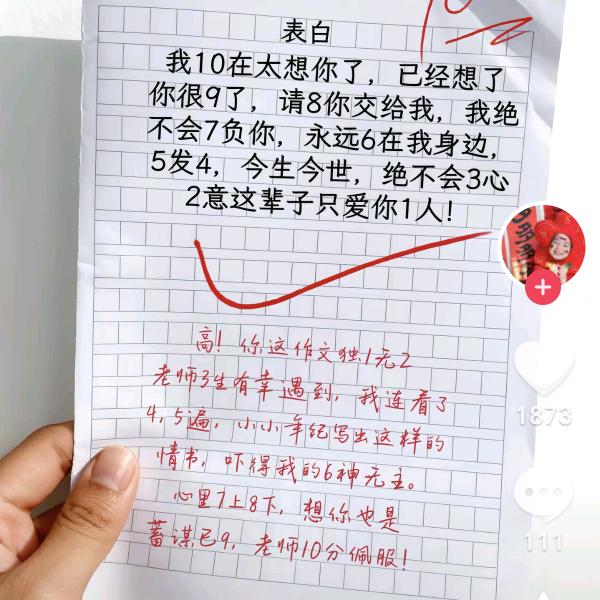 表白
我10在太想你了，已经想了
你很9了，请8你交给我，我绝
不会7负你，永远6在我身边，
5发4，今生今世，绝不会3心
2意这辈子只爱你1人！
高！你这作文独1无2
老师3生有幸遇到，我连看了
4，5遍，小小年纪写出这样的
情书，吓得我的6神无主。
心里7上8下，想你也是
蓄谋已9，老师10分佩服！
1873
111